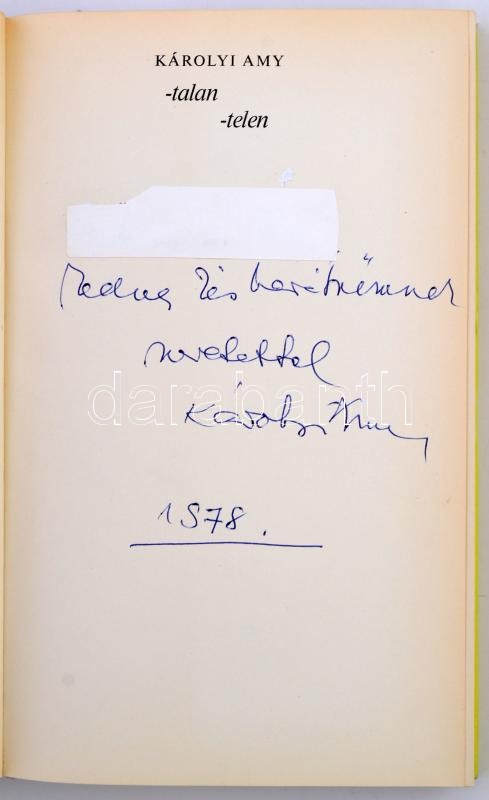 KÁROLYI AMY
-talan
-telen
kedves és barátnőmnek
szeretettel
Károlyi Amy
1978.
darabanth